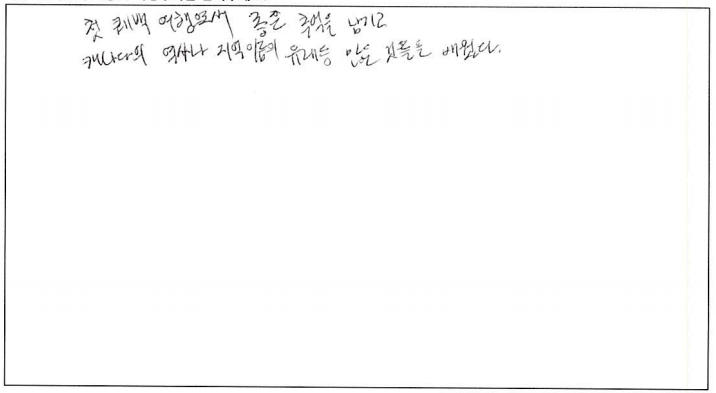 첫 퀘백 여행으로써 좋은 추억을 남기고
캐나다의 역사나 지역이름의 유래등 많은 것들을 배웠다.